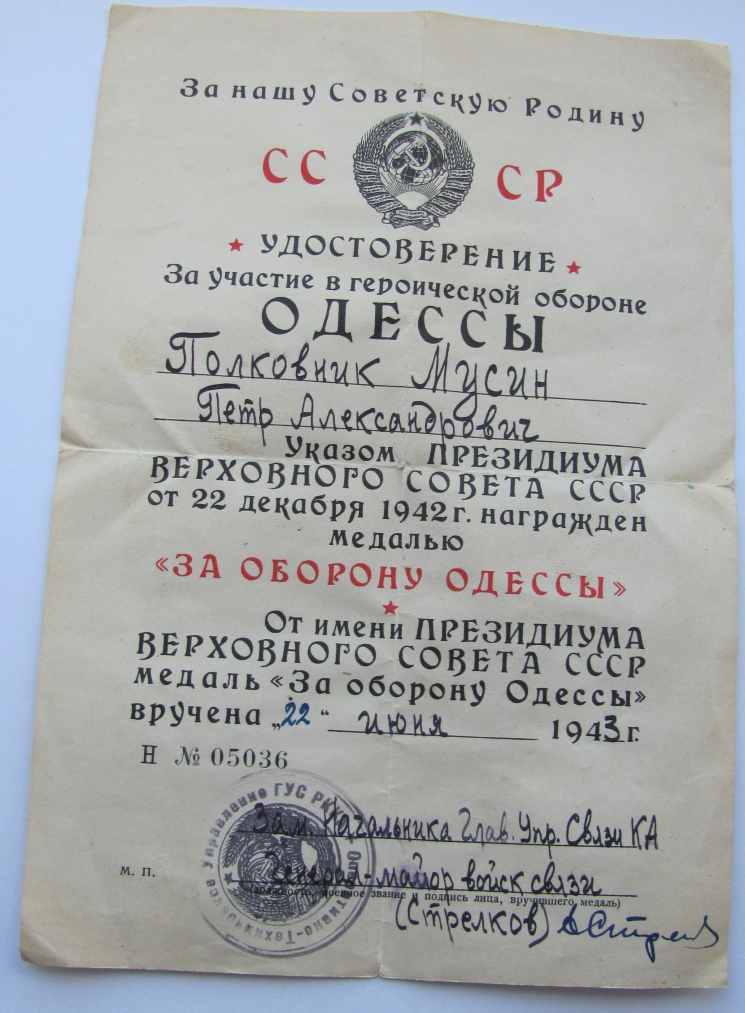 За нашу Советскую Родину
СССР
УДОСТОВЕРЕНИЕ
За участие в героической обороне
ОДЕССЫ
Полковник Мусин
Петр Александрович
Указом ПРЕЗИДИУМА
ВЕРХОВНОГО СОВЕТА СССР
от 22 декабря 1942 г. награжден
медалью
«ЗА ОБОРОНУ ОДЕССЫ»
От имени ПРЕЗИДИУМА
ВЕРХОВНОГО СОВЕТА СССР
медаль «За оборону Одессы»
вручена „22“ июня 1943 г.
Н № 05036
Зам. Начальника Глав. Упр. Связи КА
м. п. Генерал-майор войск связи
(должность, военное звание и подпись лица, вручившего медаль)
(Стрелков)
Управление ГУС